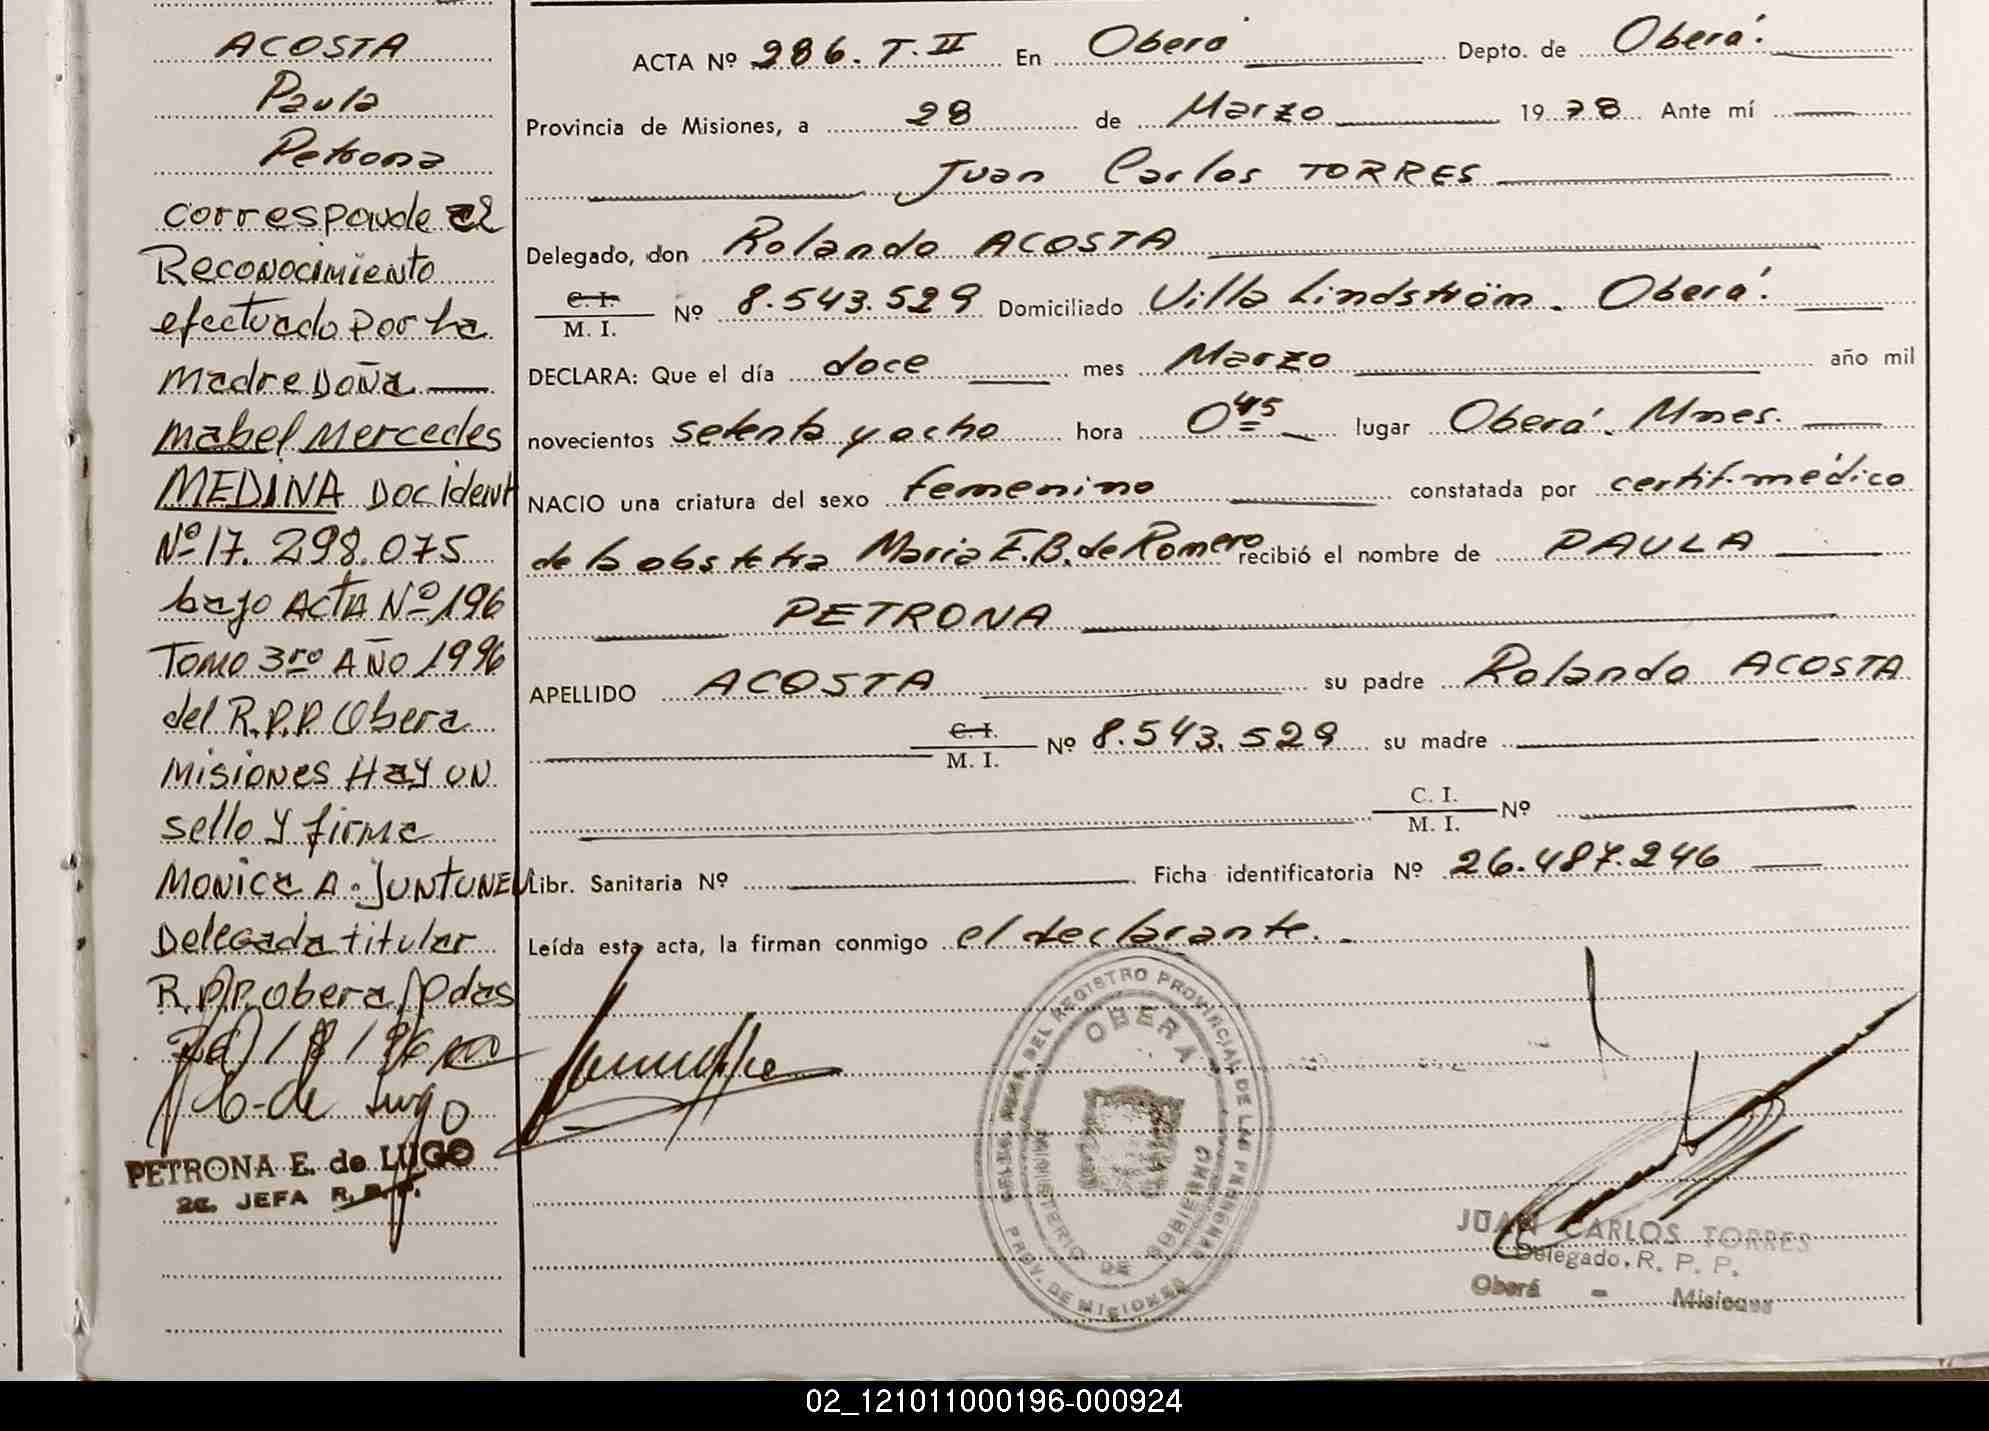 ACOSTA
Paula
Petrona
corresponde al
Reconocimiento
efectuado por la
madre Doña
Mabel Mercedes
MEDINA Doc ident
Nº 17.298.075
bajo ACTA Nº 196
Tomo 3ro AÑO 1996
del R.P.P. Obera
Misiones Hay un
sello y firma
Monica A. JUNTUNEN
Delegada titular
R.P.P. Obera Pdas
PETRONA E. de LUGO
2a. JEFA R.P.P.
ACTA Nº 286. T. II En Oberá Depto. de Oberá.
Provincia de Misiones, a 28 de Marzo 1978 Ante mí
Juan Carlos TORRES
Delegado, don Rolando ACOSTA
C. I. / M. I. Nº 8.543.529 Domiciliado Villa Lindström. Oberá.
DECLARA: Que el día doce mes Marzo año mil
novecientos setenta y ocho hora 0 45 lugar Oberá. Mnes.
NACIO una criatura del sexo femenino constatada por certif. médico
de la obstetra Maria E.B. de Romero recibió el nombre de PAULA
PETRONA
APELLIDO ACOSTA su padre Rolando ACOSTA
C. I. / M. I. Nº 8.543.529 su madre
C. I. / M. I. Nº
Libr. Sanitaria Nº Ficha identificatoria Nº 26.487.246
Leída esta acta, la firman conmigo el declarante.
REGISTRO PROVINCIAL DE LAS PERSONAS
OBERA
MINISTERIO DE GOBIERNO
PROV. DE MISIONES
JUAN CARLOS TORRES
Delegado, R. P. P.
Oberá - Misiones
02_121011000196-000924